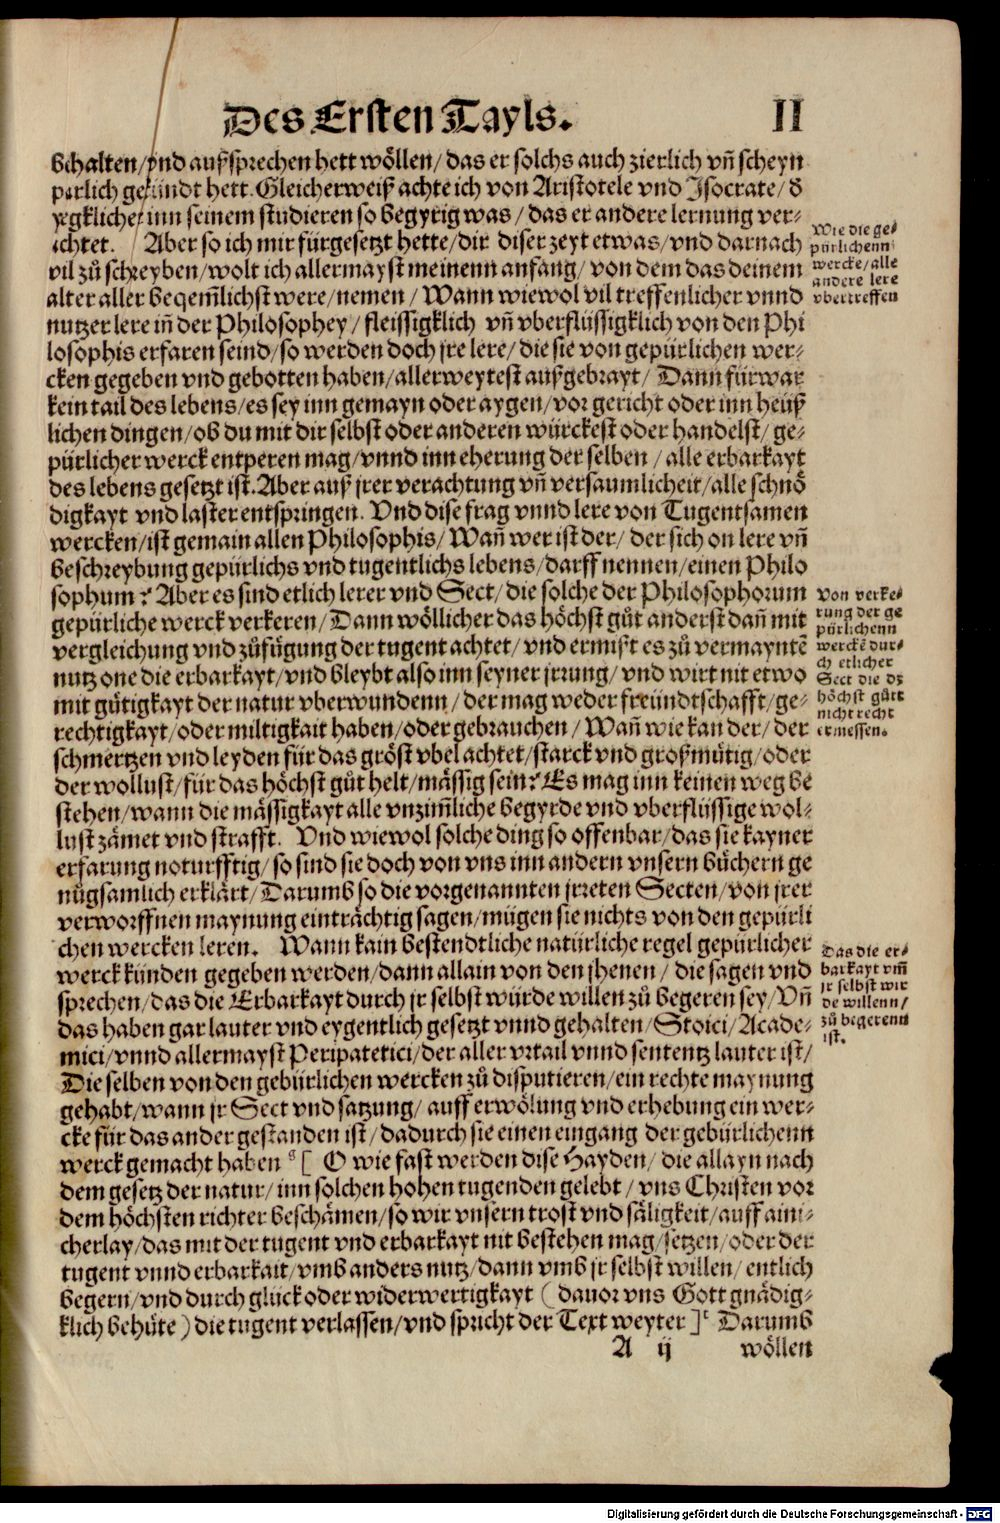 Des Ersten Tayls.
II
bihalten/vnd außsprechen hett wöllen/das er solchs auch zierlich vn̄ scheyn
parlich geründt hett. Gleicherweiß achte ich von Aristotele vnd Isocrate/d
yegklicher inn seinem studieren so begyrig was/das er andere lernung ver⸗
achtet. Aber so ich mir fürgesetzt hette/dir diser zeyt etwas/vnd darnach
vil zů schreyben/wolt ich allermayst meinenn anfang/von dem das deinem
alter aller beqem̄lichst were/nemen/Wann wiewol vil treffenlicher vnnd
nutzer lere in̄ der Philosophey/fleissigklich vn̄ vberflüssigklich von den Phi
losophis erfaren seind/so werden doch jre lere/die sie von gepürlichen wer⸗
cken gegeben vnd gebotten haben/allerweytest außgebrayt/Dann fürwar
kein tail des lebens/es sey inn gemayn oder aygen/vor gericht oder inn heüß
lichen dingen/ob du mit dir selbst oder anderen würckest oder handelst/ge⸗
pürlicher werck entperen mag/vnnd inn eherung der selben/alle erbarkayt
des lebens gesetzt ist. Aber auß jrer verachtung vn̄ versaumlicheit/alle schnö
digkayt vnd laster entspringen. Vnd dise frag vnnd lere von Tugentsamen
wercken/ist gemain allen Philosophis/Wan̄ wer ist der/der sich on lere vn̄
beschreybung gepürlichs vnd tugentlichs lebens/darff nennen/einen Philo
sophum? Aber es sind etlich lerer vnd Sect/die solche der Philosophorum
gepürliche werck verkeren/Dann wöllicher das höchst gůt anderst dan̄ mit
vergleichung vnd zůfügung der tugent achtet/vnd ermist es zů vermayntē
nutz one die erbarkayt/vnd bleybt also inn seyner jrrung/vnd wirt nit etwo
mit gütigkayt der natur vberwundenn/der mag weder freündtschafft/ge⸗
rechtigkayt/oder miltigkait haben/oder gebrauchen/Wan̄ wie kan der/der
schmertzen vnd leyden für das gröst vbel achtet/starck vnd großmütig/oder
der wollust/für das höchst gůt helt/mässig sein? Es mag inn keinen weg be
stehen/wann die mässigkayt alle vnzim̄liche begyrde vnd vberflüssige wol⸗
lust zämet vnd strafft. Vnd wiewol solche ding so offenbar/das sie kayner
erfarung noturfftig/so sind sie doch von vns inn andern vnsern büchern ge
nůgsamlich erklärt/Darumb so die vorgenannten jrreten Secten/von jrer
verworffnen maynung einträchtig sagen/mügen sie nichts von den gepürli
chen wercken leren. Wann kain bestendtliche natürliche regel gepürlicher
werck künden gegeben werden/dann allain von den jhenen/die sagen vnd
sprechen/das die Erbarkayt durch jr selbst würde willen zů begeren sey/Vn̄
das haben gar lauter vnd eygentlich gesetzt vnnd gehalten/Stoici/Acade⸗
mici/vnnd allermayst Peripatetici/der aller vrtail vnnd sententz lauter ist/
Die selben von den gebürlichen wercken zů disputieren/ein rechte maynung
gehabt/wann jr Sect vnd satzung/auff erwölung vnd erhebung ein wer⸗
cke für das ander gestanden ist/dadurch sie einen eingang der gebürlichenn
werck gemacht haben [ O wie fast werden dise Hayden/die allayn nach
dem gesetz der natur/inn solchen hohen tugenden gelebt/vns Christen vor
dem höchsten richter beschämen/so wir vnsern trost vnd säligkeit/auff aini⸗
cherlay/das mit der tugent vnd erbarkayt nit bestehen mag/setzen/oder der
tugent vnnd erbarkait/vmb anders nutz/dann vmb jr selbst willen/entlich
begern/vnd durch glück oder widerwertigkayt (dauor vns Gott gnädig⸗
klich behüte) die tugent verlassen/vnd spricht der Text weyter ] Darumb
A ij wöllen
Wie die ge⸗
pürlichenn
wercke/alle
andere lere
vbertreffen
Von verke⸗
rung der ge
pürlichenn
werckē dur⸗
ch etlicher
Sect die dz
höchst gůt
nicht recht
ermessen.
Das die er⸗
barkayt vm̄
jr selbst wir
de willenn/
zů begerenn
ist.
Digitalisierung gefördert durch die Deutsche Forschungsgemeinschaft - DFG